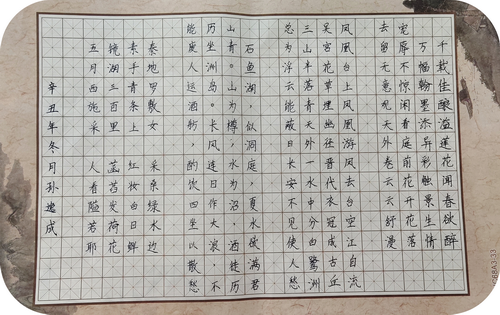 千载佳酿溢莲花闻春欲醉
万幅翰墨添异彩触景生情
宠辱不惊闲看庭前花开花落
去留无意观天外卷云云舒漫
凤凰台上凤凰游凤去台空江自流
吴宫花草埋幽径晋代衣冠成古丘
三山半落青天外一水中分白鹭洲
总为浮云能蔽日长安不见使人愁
石鱼湖，似洞庭，夏水欲满君
山青。山为樽，水为沼，酒徒历
历坐洲岛。长风连日作大浪，不
能废人运酒舫，酌饮四坐以散愁
秦地罗敷女 采桑绿水边
素手青条上 红妆白日鲜
镜湖三百里 菡萏发荷花
五月西施采 人看隘若耶
辛丑年冬月孙逸成